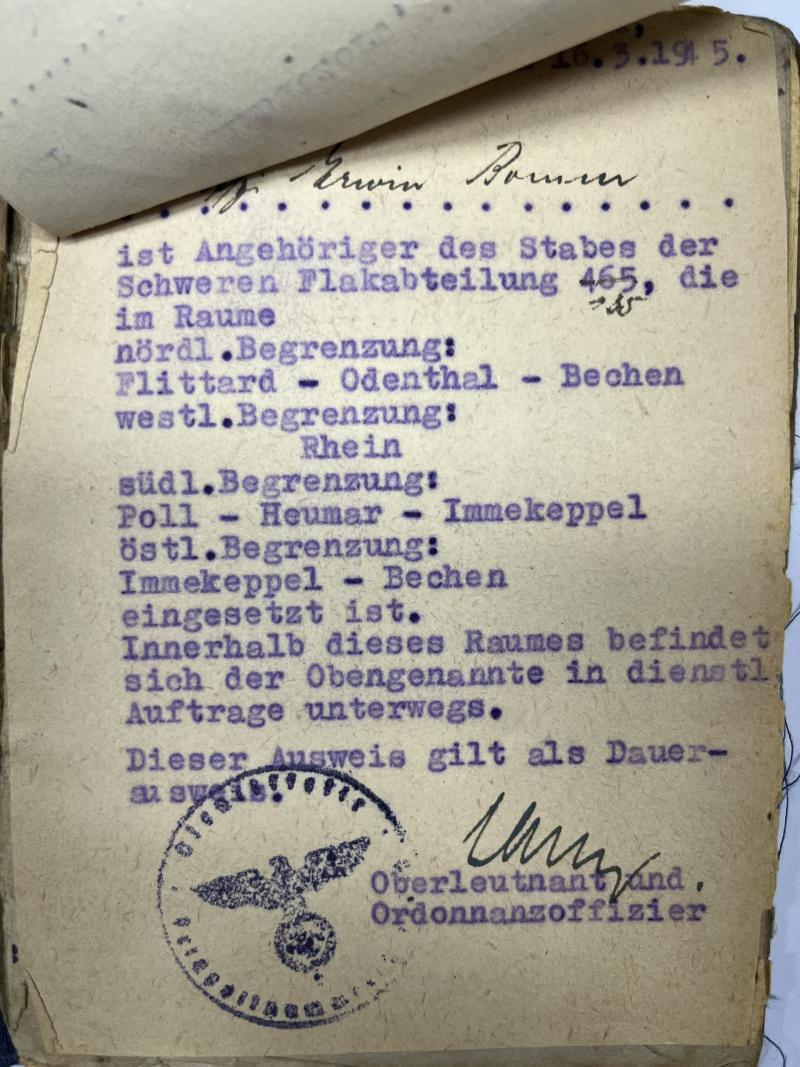 16.3.1945.
Erwin
ist Angehöriger des Stabes der
Schweren Flakabteilung 465, die
im Raume
nördl.Begrenzung:
Flittard - Odenthal - Bechen
westl.Begrenzung:
Rhein
südl.Begrenzung:
Poll - Heumar - Immekeppel
östl.Begrenzung:
Immekeppel - Bechen
eingesetzt ist.
Innerhalb dieses Raumes befindet
sich der Obengenannte in dienstl
Auftrage unterwegs.
Dieser Ausweis gilt als Dauer-
ausweis.
Oberleutnant und
Ordonnanzoffizier